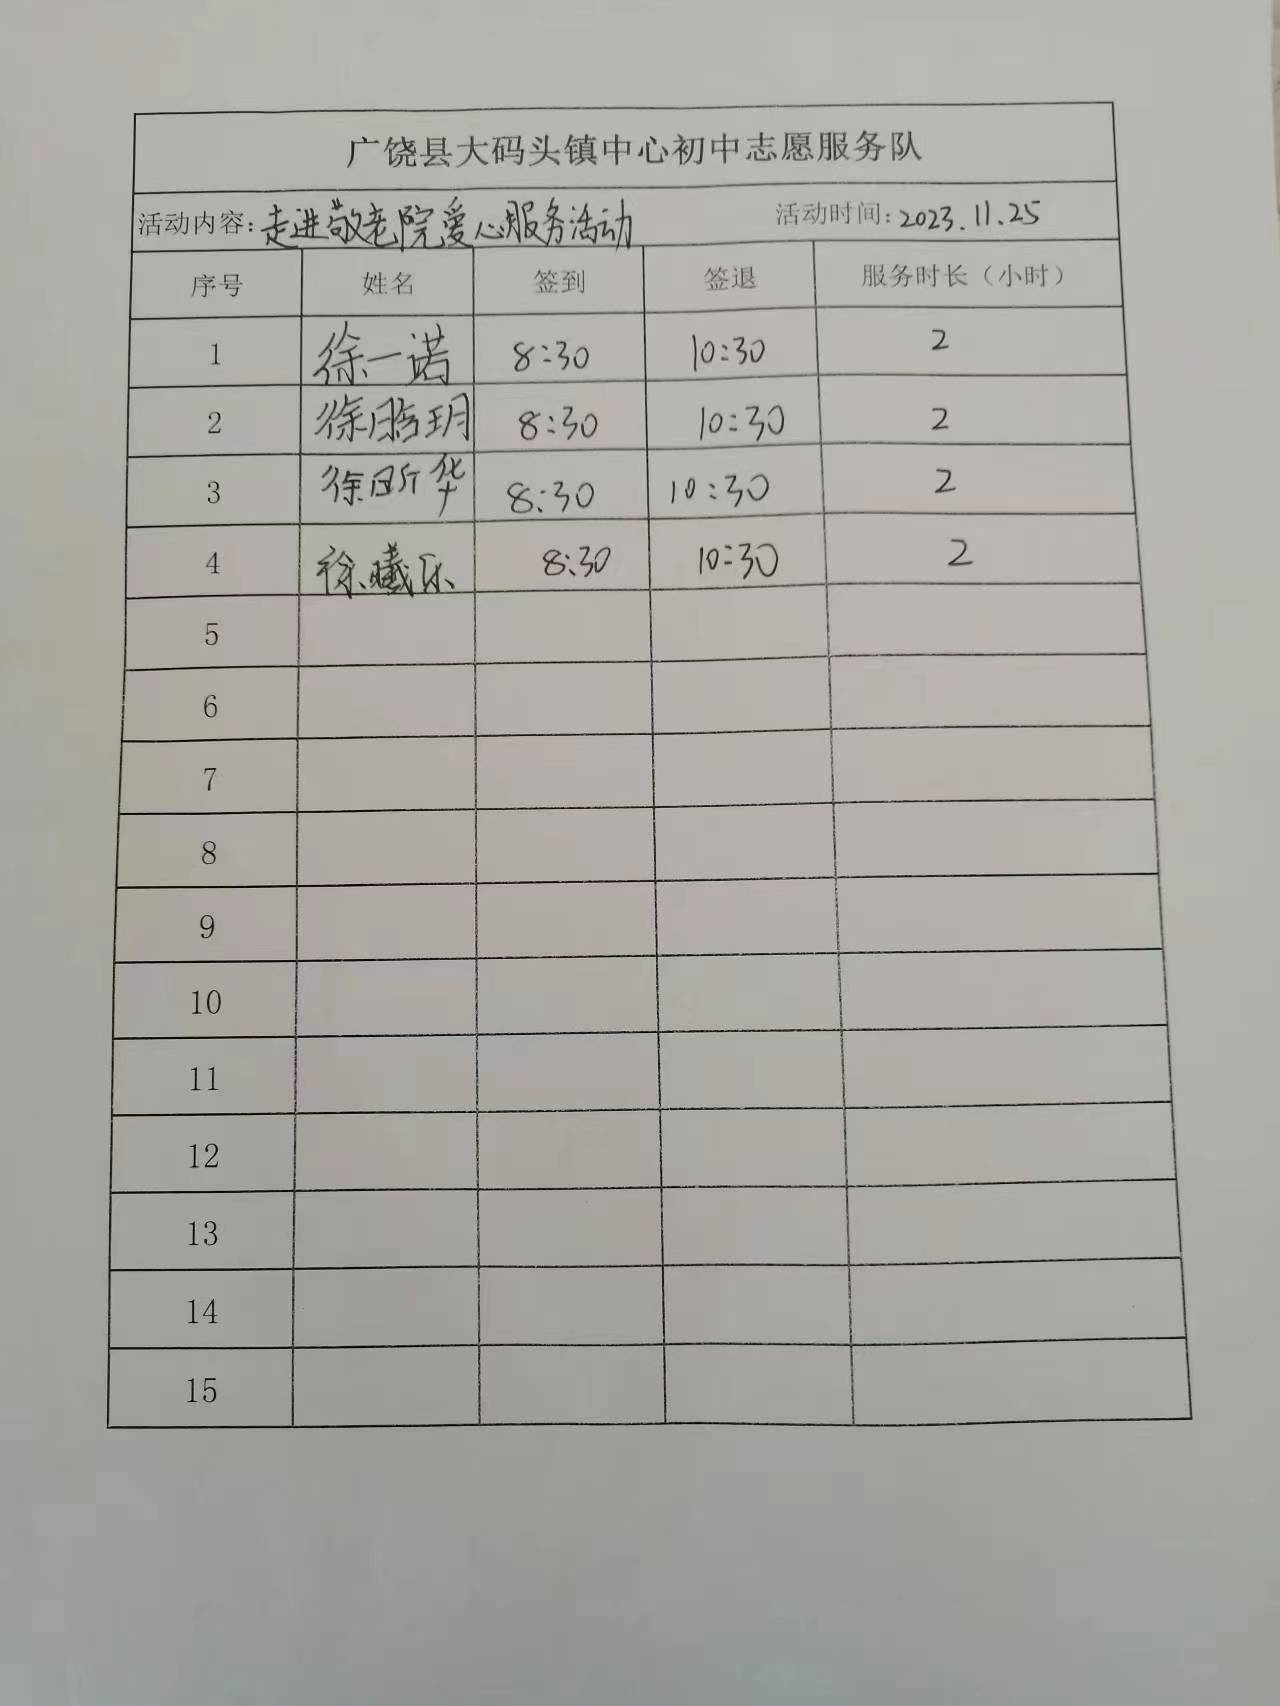 广饶县大码头镇中心初中志愿服务队
活动内容：走进敬老院爱心服务活动 活动时间：2023.11.25
序号 姓名 签到 签退 服务时长（小时）
1 徐一诺 8:30 10:30 2
2 徐晗玥 8:30 10:30 2
3 徐昕华 8:30 10:30 2
4 徐曦乐 8:30 10:30 2
5
6
7
8
9
10
11
12
13
14
15